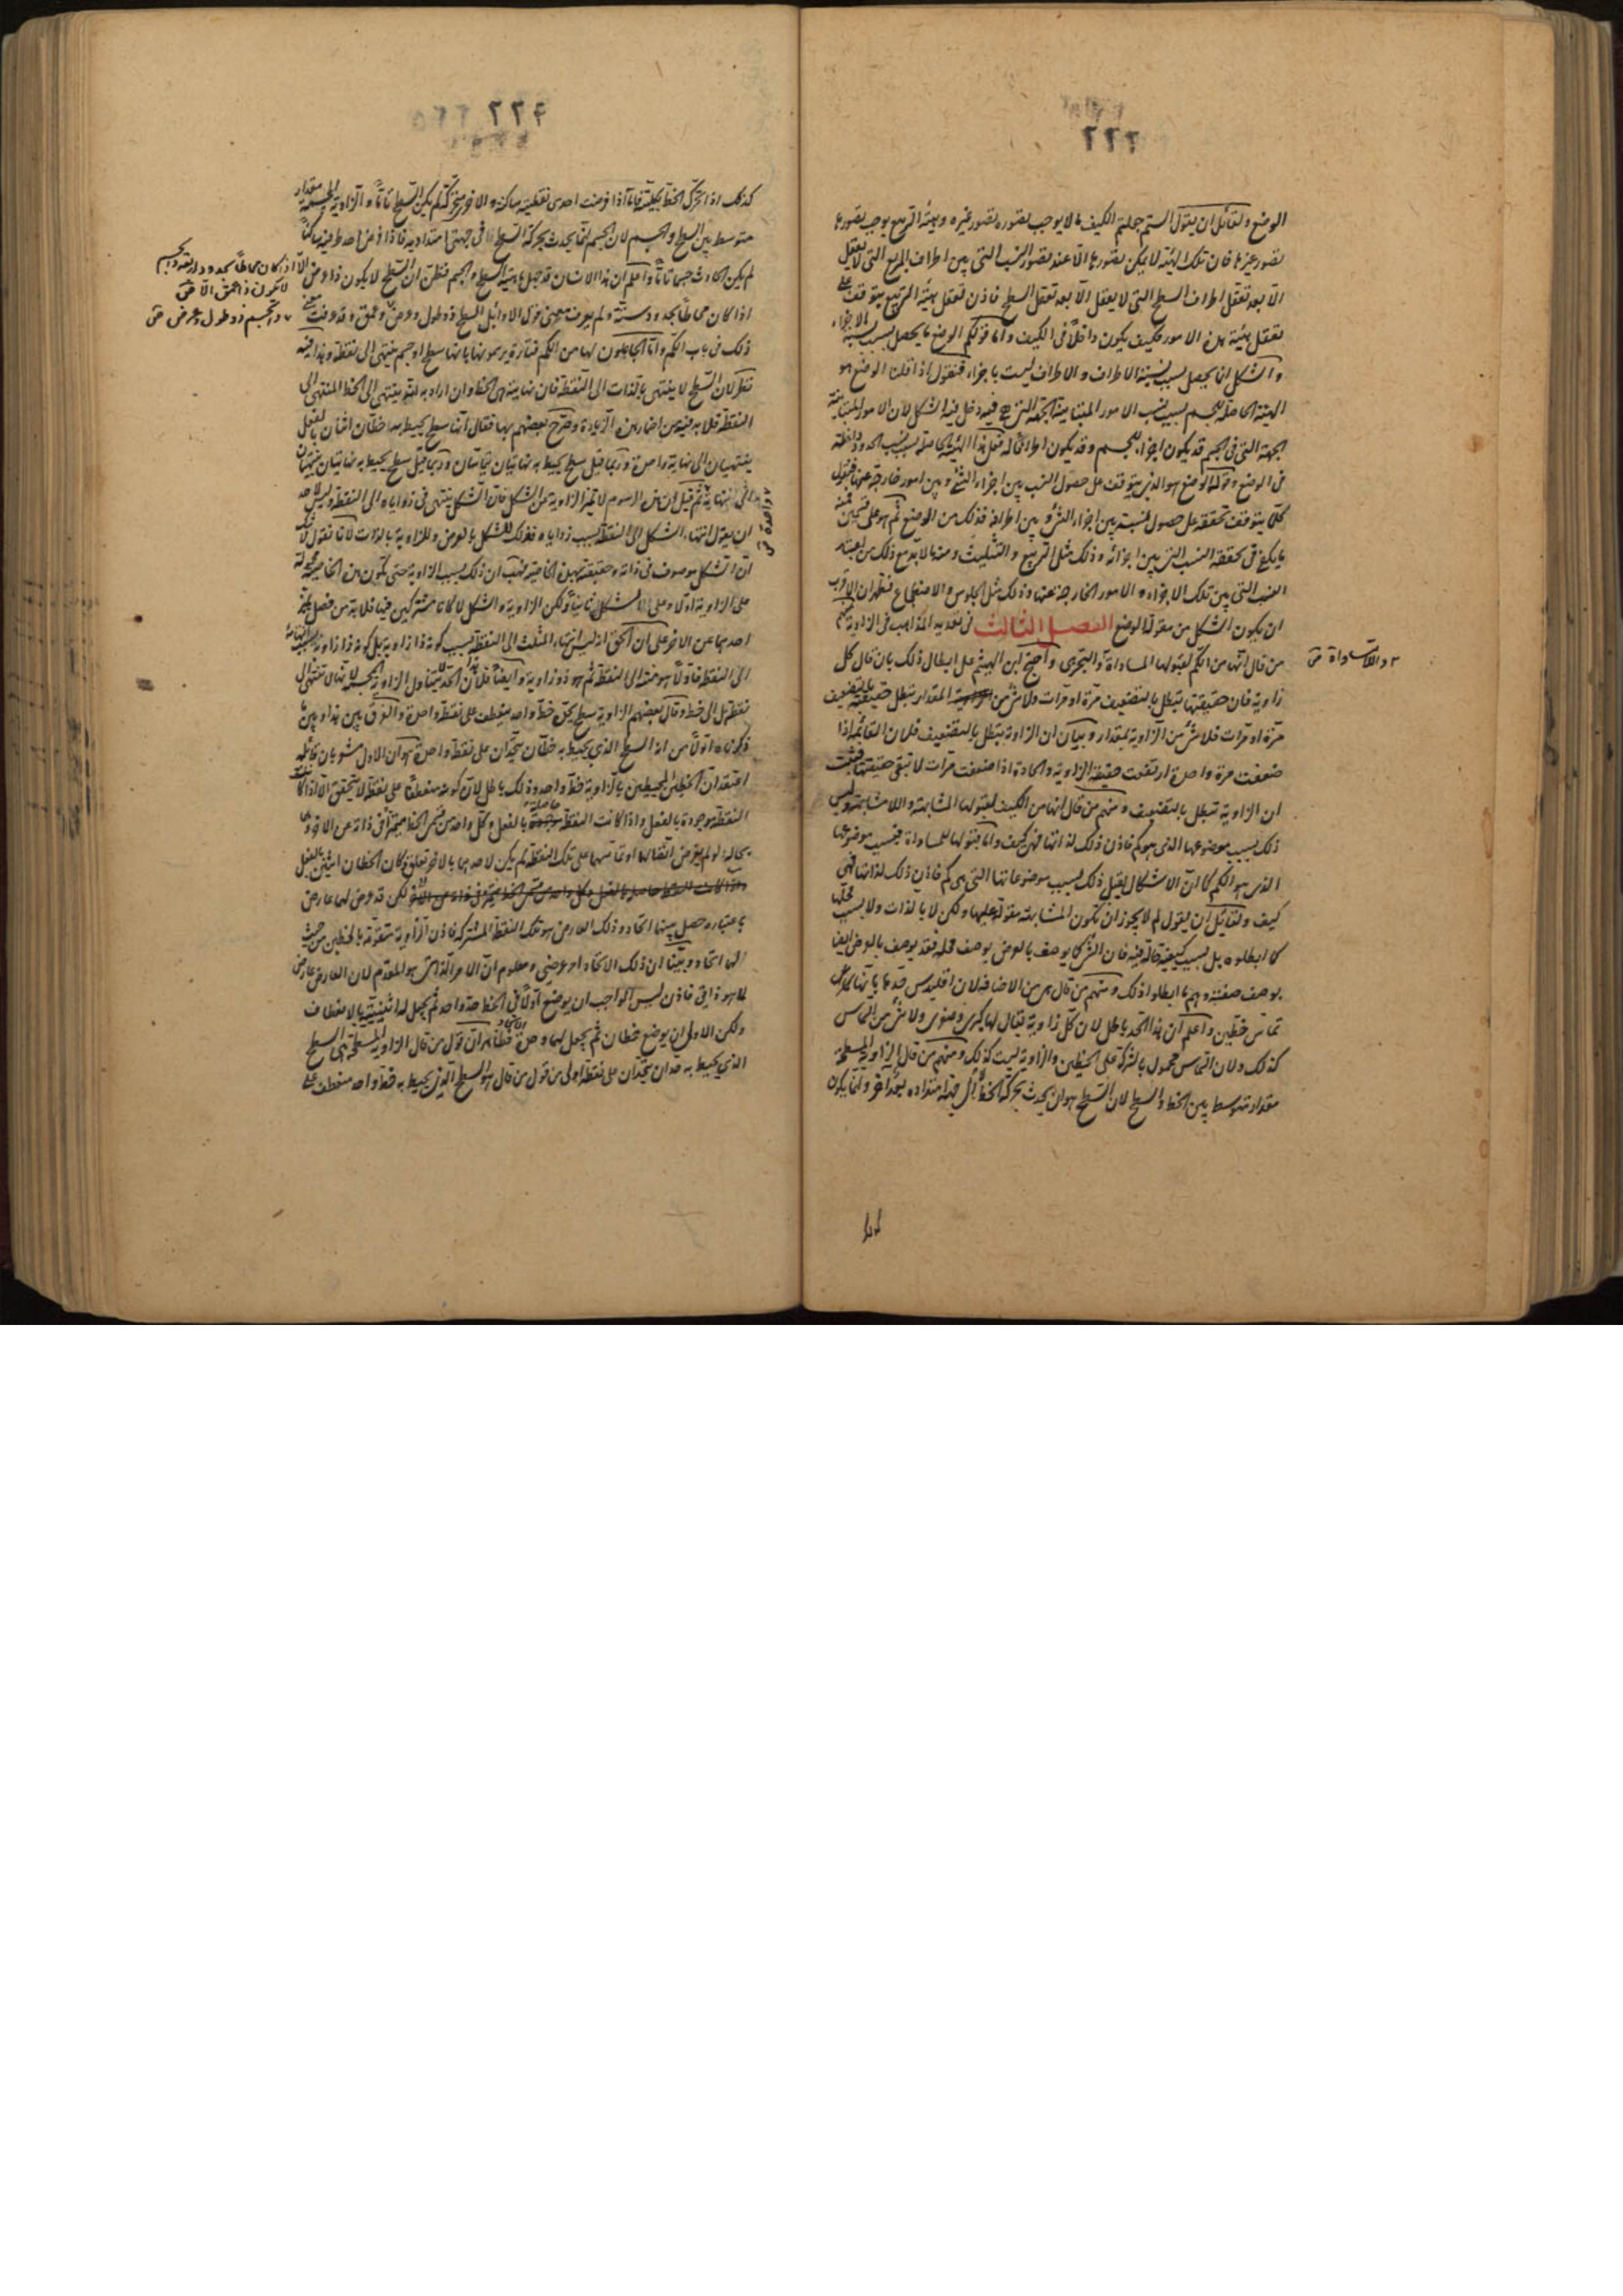 ٢٢٣
الوضع ولقائل ان يقول الستم جعلتم الكيف ما لا يوجب تصوره تصور غيره وهيئة التربيع يوجب تصورها
تصور غيرها فان تلك الهيئة لا يمكن تصورها الا عند تصور النسب التي بين اطراف المربع التي لا يعقل
الا بعد تعقل اطراف السطح التي لا يعقل الا بعد تعقل السطح فاذن تعقل هيئة التربيع يتوقف على
تعقل هيئة هذه الامور فكيف يكون داخلا في الكيف واما قولكم الوضع ما يحصل بسبب نسبة الاجزاء
والشكل انما يحصل بسبب نسبة الاطراف والاطراف ليست باجزاء فنقول اذا قلنا الوضع هو
الهيئة الحاصلة للجسم بسبب نسب الامور المتباينة الجهة التي فيه دخل فيه الشكل لان الامور المتباينة
الجهة التي في الجسم قد يكون اجزاء للجسم وقد يكون اطرافا له فعلى هذا الهيئة الحاصلة بسبب نسب الحدود داخلة
في الوضع وقوله الوضع هو الذي يتوقف على حصول النسب بين اجزاء الشئ وبين امور خارجة عنها فنقول
كلا يتوقف تحققه على حصول نسبة بين اجزاء الشئ وبين اطرافه فذلك من الوضع ثم هو على قسمين فمنه
ما يكفي في تحققه النسب التي بين اجزائه وذلك مثل التربيع والتثليث ومنه ما لا بد مع ذلك من اعتبار
النسب التي بين تلك الاجزاء والامور الخارجة عنها وذلك مثل الجلوس والاضطجاع فظهر ان الاقرب
ان يكون الشكل من مقولة الوضع الفصل الثالث في تعديد المذاهب في الزاوية فمنهم
من قال انها من الكم لقبولها المساواة والتجزى واحتج ابن الهيثم على ابطال ذلك بان قال كل
واللامساواة
زاوية فان حقيقتها تبطل بالتضعيف مرة او مرات ولا شئ من المقدار تبطل حقيقته بالتضعيف
مرة او مرات فلا شئ من الزاوية بمقدار وبيان ان الزاوية تبطل بالتضعيف فلان القائمة اذا
ضعفت مرة واحدة ارتفعت حقيقة الزاوية والحادة اذا ضعفت مرات لا تبقى حقيقتها فثبت
ان الزاوية تبطل بالتضعيف ومنهم من قال انها من الكيف لقبولها المشابهة واللامشابهة وليس
ذلك بسبب موضوعها الذي هو كم فاذن ذلك لذاتها فهي كيف واما قبولها للمساواة فبسبب موضوعها
الذي هو الكم كما ان الاشكال يقبل ذلك بسبب موضوعاتها التي هي كم فاذن ذلك لذاتها فهي
كيف ولقائل ان يقول لم لا يجوز ان تكون المشابهة مقولة عليها ولكن لا بالذات ولا بسبب محلها
كما ابطلوه بل بسبب كيفية حالة فيه فان الشئ كما يوصف بالعرض بوصف محله فقد يوصف بالعرض ايضا
بوصف صفته وهم ما ابطلوا ذلك ومنهم من قال هي من الاضافة لان اقليدس حدها بانها
تماس خطين واعلم ان هذا الحد باطل لان كل زاوية يقال لها كبرى وصغرى ولا شئ من التماس
كذلك ولان التماس محمول بالشركة على الخطين والزاوية ليست كذلك ومنهم من قال الزاوية المسطحة
مقدار متوسط بين الخط والسطح لان السطح هو ان يحدث بحركة الخط الى جهة امتداده بعد اخر وانما يكون
٢٢٤
كذلك اذا تحرك الخط بكليته فاما اذا فرضت احدى نقطتيه ساكنة والاخر متحركة لم يكن السطح تاما والزاوية المجسمة مقدار
متوسط بين السطح والجسم لان الجسم انما يحدث بحركة السطح في جهتي امتداديه فاذا فرض احد طرفيه ساكنا
لم يكن الحادث جسما تاما واعلم ان هذا الانسان قد جهل ماهية السطح والجسم فظن ان السطح لا يكون ذا عرض الا
اذا كان محاطا بحدود اربعة والجسم
لا يكون ذا عمق الا
اذا كان محاطا بحدود ستة ولم يعرف معنى قول الاوائل السطح ذو طول وعرض وعمق وقد عرفت معنى
والجسم ذو طول وعرض
ذلك في باب الكم واما الجاعلون لها من الكم فتارة يرسمونها بانها سطح او جسم ينتهي الى نقطة وهذا فيه
نظر لان السطح لا ينتهي بالذات الى النقطة فان نهايته هي الخط وان اراد به انه ينتهي الى الخط المنتهي الى
النقطة فلا بد فيه من اضمار هذه الزيادة وصرح بعضهم بها فقال انها سطح يحيط به خطان اثنان بالفعل
ينتهيان الى نهاية واحدة وربما قيل سطح يحيط به نهايتان تتماسان وربما قيل سطح يحيط به نهايتان ينتهيان
الى نهاية ثم قيل ان هذه الرسوم لا تميز الزاوية عن الشكل فان الشكل ينتهي في زواياه الى النقطة وليس لاحد
واحدة
ان يقول انتهاء الشكل الى النقطة بسبب زواياه فذلك للشكل بالعرض وللزاوية بالذات لانا نقول لا شك
ان الشكل موصوف في ذاته وحقيقته بهذه الخاصية فهب ان ذلك بسبب الزاوية حتى تكون هذه الخاصية محمولة
على الزاوية اولا وعلى الشكل ثانيا ولكن الزاوية والشكل لما كانا مشتركين فيها فلا بد من فصل يميز
احدهما عن الاخر على ان الحق انه ليس انتهاء المثلث الى النقطة بسبب كونه ذا زاوية بل كونه ذا زاوية بسبب انتهائه
الى النقطة فاولا هو منته الى النقطة ثم هو ذو زاوية وايضا فلان الحد لا يتناول الزاوية المجسمة لانها لا تنتهي الى
نقطة بل الى خط وقال بعضهم الزاوية سطح يحيط به خط واحد ينعطف على نقطة واحدة والفرق بين هذا وبين ما
ذكرناه اولا من انه السطح الذي يحيط به خطان يتحدان على نقطة واحدة هو ان الاول مشعر بان قائله
اعتقد ان الخطين المحيطين بالزاوية خط واحد وذلك باطل لان كونه منعطفا على نقطة لا يتحقق الا اذا كانت
النقطة موجودة بالفعل واذا كانت النقطة حاصلة بالفعل وكل واحد من قسمي الخط متميزا في ذاته عن الاخر وهما
بحالة لو لم يفرض اتصالهما او تماسهما على تلك النقطة لم يكن لاحدهما بالاخر تعلق وكان الخطان اثنين بالفعل
لكن قد عرض لهما عارض
باعتباره حصل بينهما اتحاد وذلك العارض هو تلك النقطة المشتركة فاذن الزاوية متقومة بالخطين من حيث
لهما اتحاد وبينا ان ذلك الاتحاد امر عرضي ومعلوم ان الامر الذاتي هو المقدم لان العارض عارض
لما هو ذاتي فاذن ليس الواجب ان يوضع اولا في الخط حد واحد ثم يجعل له اثنينية بالانعطاف
ولكن الاولى ان يوضع خطان ثم يجعل لهما وحدة اتحاد فظاهر ان قول من قال الزاوية المسطحة هي السطح
الذي يحيط به حدان يتحدان على نقطة اولى من قول من قال هو السطح الذي يحيط به خط واحد منعطف على